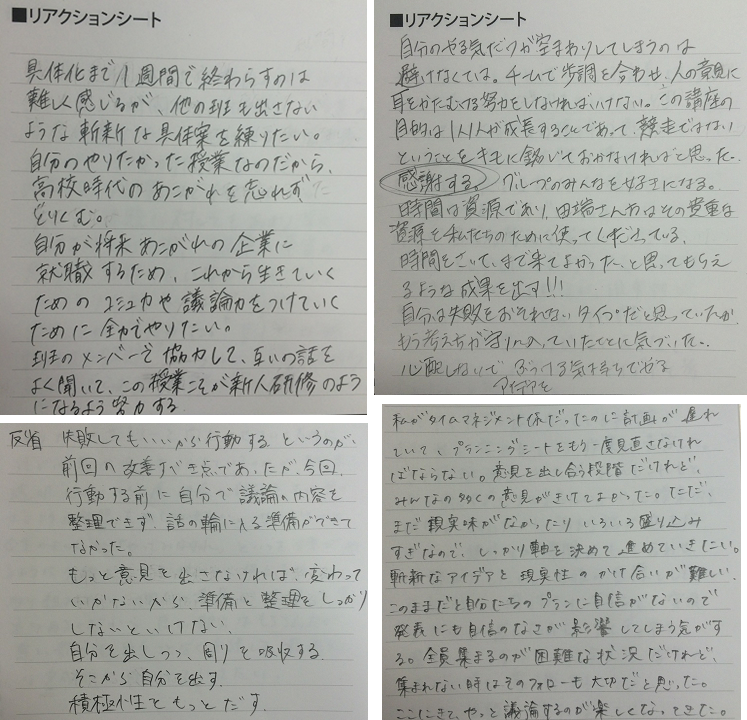 ■リアクションシート
具体化まで1週間で終わらすのは
難しく感じるが、他の班も出さない
ような斬新な具体案を練りたい。
自分のやりたかった授業なのだから、
高校時代のあこがれを忘れず
とりくむ。
自分が将来あこがれの企業に
就職するため、これから生きていく
ためのコミュ力や議論力をつけていく
ために全力でやりたい。
班のメンバーで協力して、互いの話を
よく聞いて、この授業こそが新人研修のよう
になるよう努力する
■リアクションシート
自分のやる気だけが空まわりしてしまうのは
避けなくては。チームで歩調を合わせ、人の意見に
耳をかたむける努力をしなければいけない。この講座の
目的は1人1人が成長することであって、競走ではない
ということをキモに銘じておかなければと思った。
感謝する。グループのみんなを好きになる。
時間は資源であり、田端さん方はその貴重な
資源を私たちのために使ってくださっている。
時間をさいてまで来てよかった、と思ってもらえ
るような成果を出す!!!
自分は失敗をおそれないタイプだと思っていたが、
もう考え方が守りへ入っていたことに気づいた。
心配しないで ぶつける気持ちでやる
アイデアを
反省 失敗してもいいから行動する というのが、
前回の改善すべき点であったが、今回、
行動する前に自分で議論の内容を
整理できず、話の輪に入る準備ができて
なかった。
もっと意見を出さなければ、変わって
いかないから、準備と整理をしっかり
しないといけない。
自分を出しつつ、周りを吸収する。
そこから自分を出す。
積極性をもっとだす。
私がタイムマネジメント係だったのに計画が遅れ
ていて、プランニングシートをもう一度見直さなけれ
ばならない。意見を出し合う段階だけれど、
みんなの多くの意見がきけてよかった。ただ、
まだ現実味がなかったり いろいろ盛り込み
すぎなので、しっかり軸を決めて進めていきたい。
斬新なアイデアと現実性のかけ合いが難しい。
このままだと自分たちのプランに自信がないので
発表にも自信のなさが影響してしまう気がす
る。全員集まるのが困難な状況だけれど、
集まれない時はそのフォローも大切だと思った。
ここにきて、やっと議論するのが楽しくなってきた。